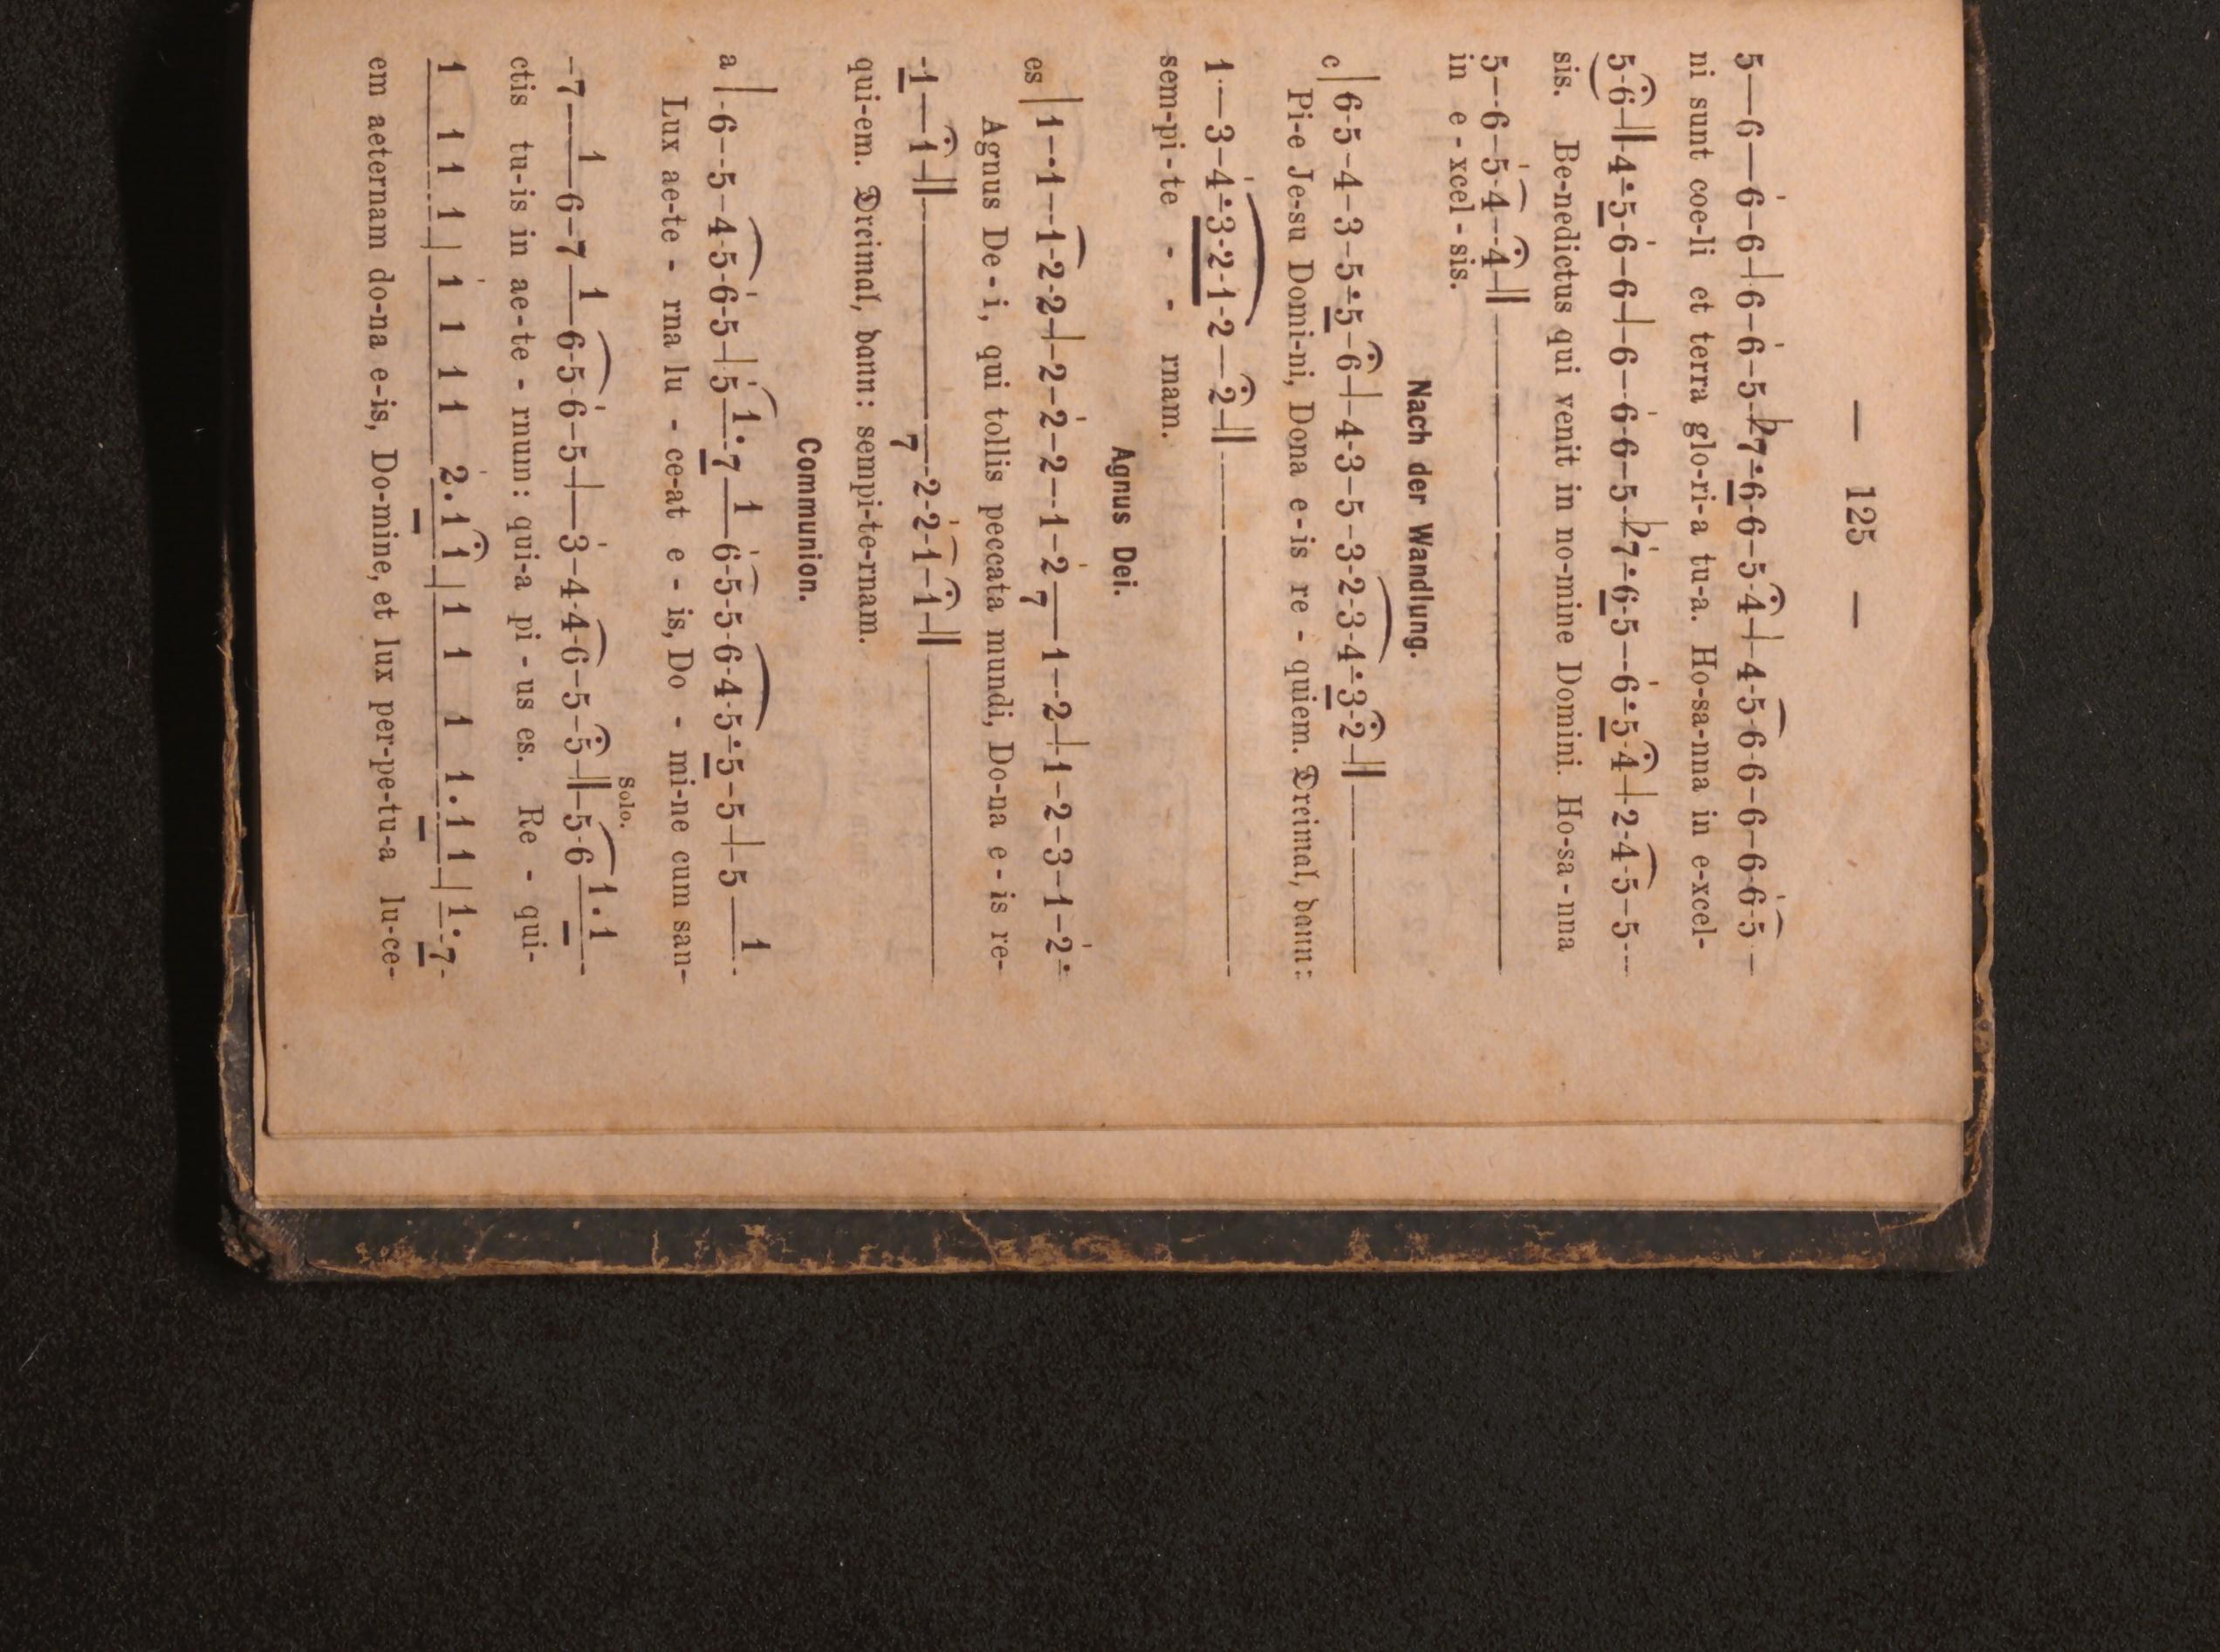 — 125 —
5—6—6—6-|-6—6—5-♭7-·6-6—5-4-|-4-5-6-6—6—6-6-5—
ni sunt coe-li et terra glo-ri-a tu-a. Ho-sa-nna in e-xcel-
5-6-||-4-·5-6—6-|-6—6-6—5-♭7-·6-5—6-·5-4-|-2-4-5—5—
sis. Be-nedictus qui venit in no-mine Domini. Ho-sa-nna
5—6—5-4—4-||
in e-xcel-sis.
Nach der Wandlung.
c|6-5—4—3—5-·5—6-|-4-3—5—3-2-3-4-·3-2-||
Pi-e Je-su Domi-ni, Dona e-is re - quiem. Dreimal, dann:
1—3—4-·3-2-1-2—2-||
sem-pi-te - - rnam.
Agnus Dei.
es|1—1—1-2-2-|-2—2—2—2—1—2—7—1—2-|-1—2—3—1—2·
Agnus De-i, qui tollis peccata mundi, Do-na e-is re-
-1—1-||—7—2-2-1—1-||
qui-em. Dreimal, dann: sempi-te-rnam.
Communion.
a|-6—5—4-5-6-5-|-5—1·-7—1—6-5-5-6-4-5-·5—5-|-5—1-
Lux ae-te - rna lu - ce-at e - is, Do - mi-ne cum san-
Solo.
-7—1—6—7—1—6-5-6—5-|-3—4-4-6—5—5-||-5-6-1·1-
ctis tu-is in ae-te - rnum: qui-a pi - us es. Re - qui-
1 1 1 1 | 1 1 1 1 2·1 1 | 1 1 1 1·1 1 | 1·7-
em aeternam do-na e-is, Do-mine, et lux per-pe-tu-a lu-ce-